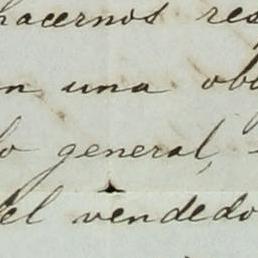 hacernos res
n una ob
lo general,
del vendedo